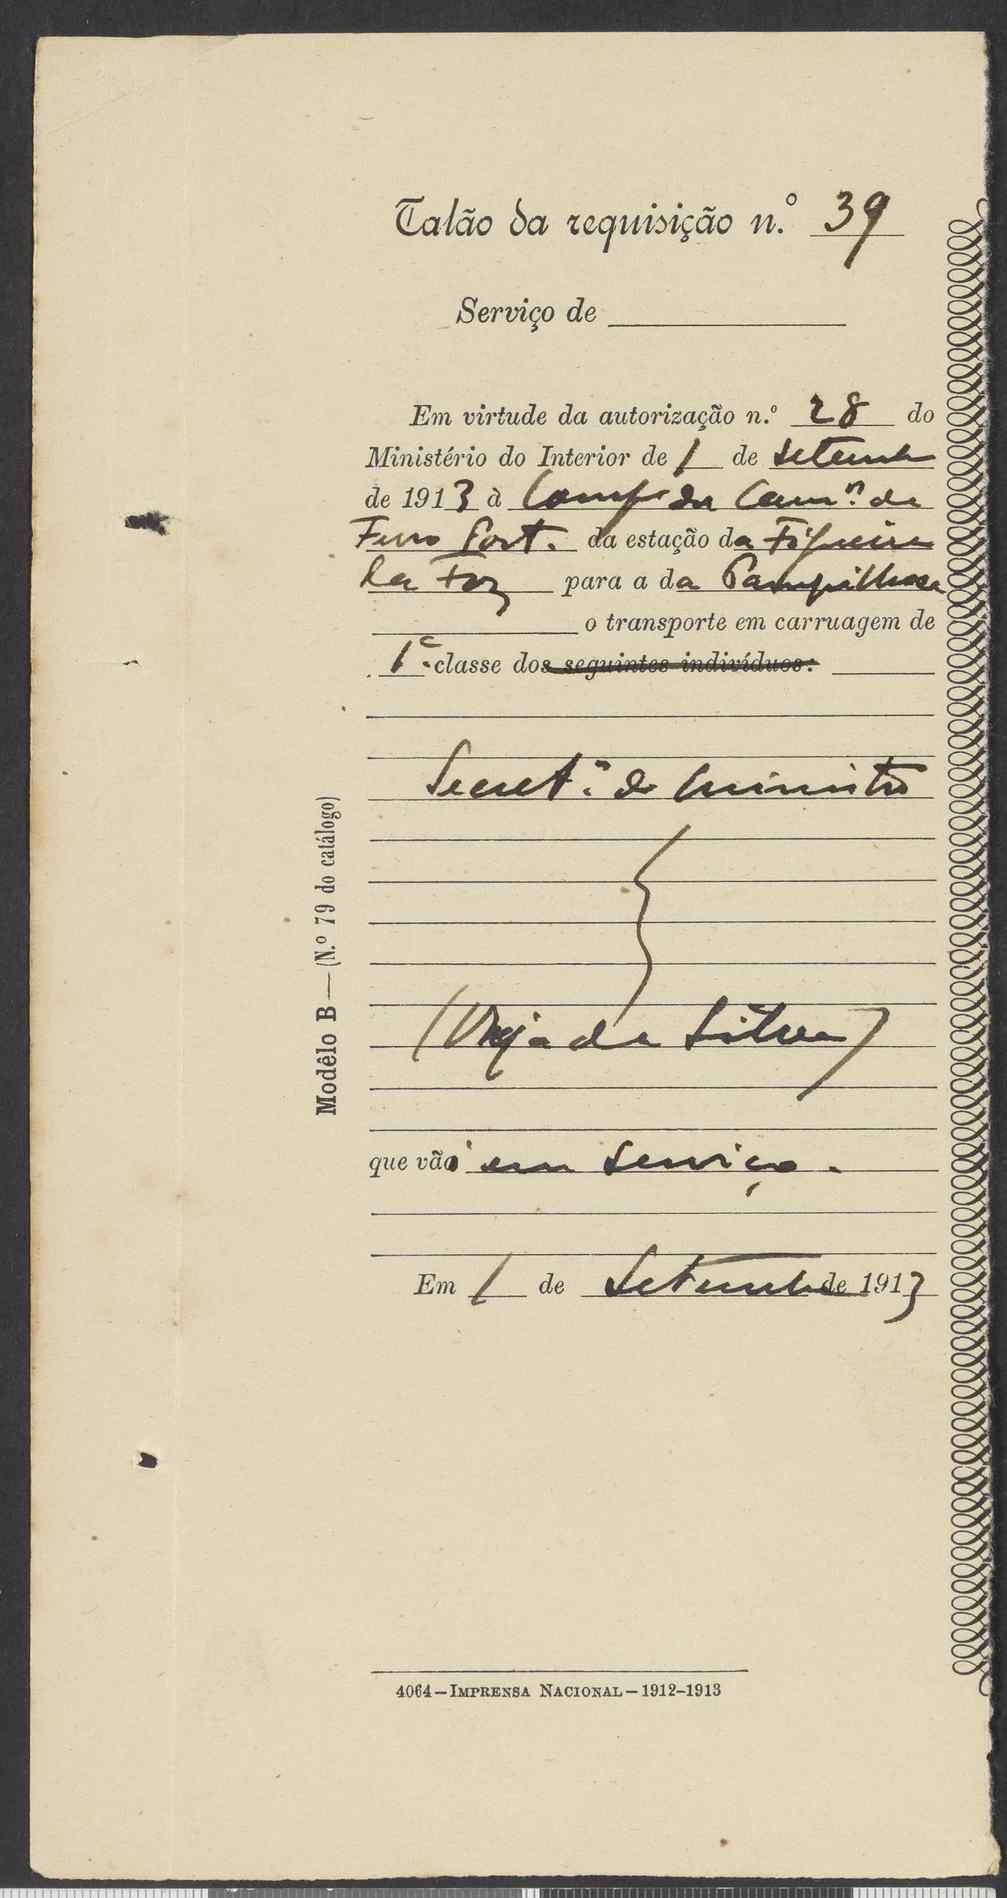 Talão da requisição n.º 39
Serviço de
Em virtude da autorização n.º 28 do
Ministério do Interior de 1 de Setembr
de 1913 à Comp. da Camº. de
Ferro Port. da estação da Figueira
da Foz para a da Pampilhosa
o transporte em carruagem de
1.ª classe dos seguintes indivíduos:
Secretº. do ministro
( da Silva)
que vão em serviço.
Em 1 de Setembr de 1913
Modêlo B — (N.º 79 do catálogo)
4064 – IMPRENSA NACIONAL – 1912-1913